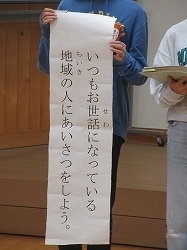 いつもお世話になっている
地域の人にあいさつをしよう。